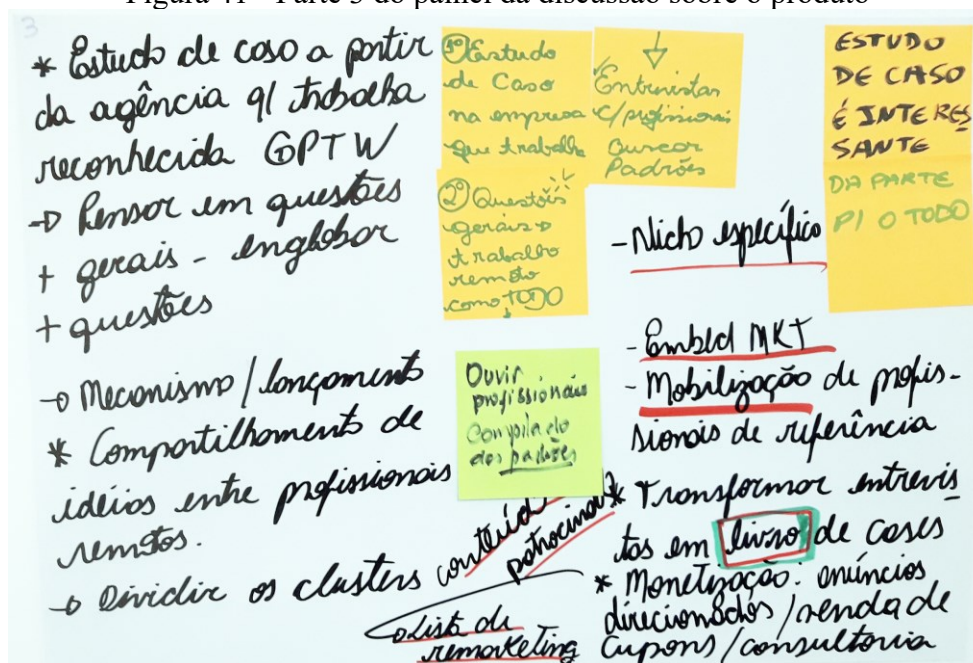 Figura 41 - Parte 3 do painel da discussão sobre o produto
3
* Estudo de caso a partir
da agência q/ trabalha
reconhecida GPTW
→ Pensar em questões
+ gerais - englobar
+ questões
→ Mecanismo / lançamento
* Compartilhamento de
idéias entre profissionais
remotos.
→ Dividir os clusters
conteúdo
patrocinado
→ Lista de
remarketing
1º Estudo
de Caso
na empresa
que trabalha
2º Questões
gerais →
trabalho
remoto
como TODO
Ouvir
profissionais
Compilado
dos padrões
Entrevistas
c/ profissionais
buscar
Padrões
ESTUDO
DE CASO
É INTERES
SANTE
DA PARTE
P/ O TODO
- Nicho específico
- Embed MKT
- Mobilização de profis-
sionais de referência
* Transformar entrevis
tas em livro de cases
* Monetização: anúncios
direcionados / venda de
cupons / consultoria